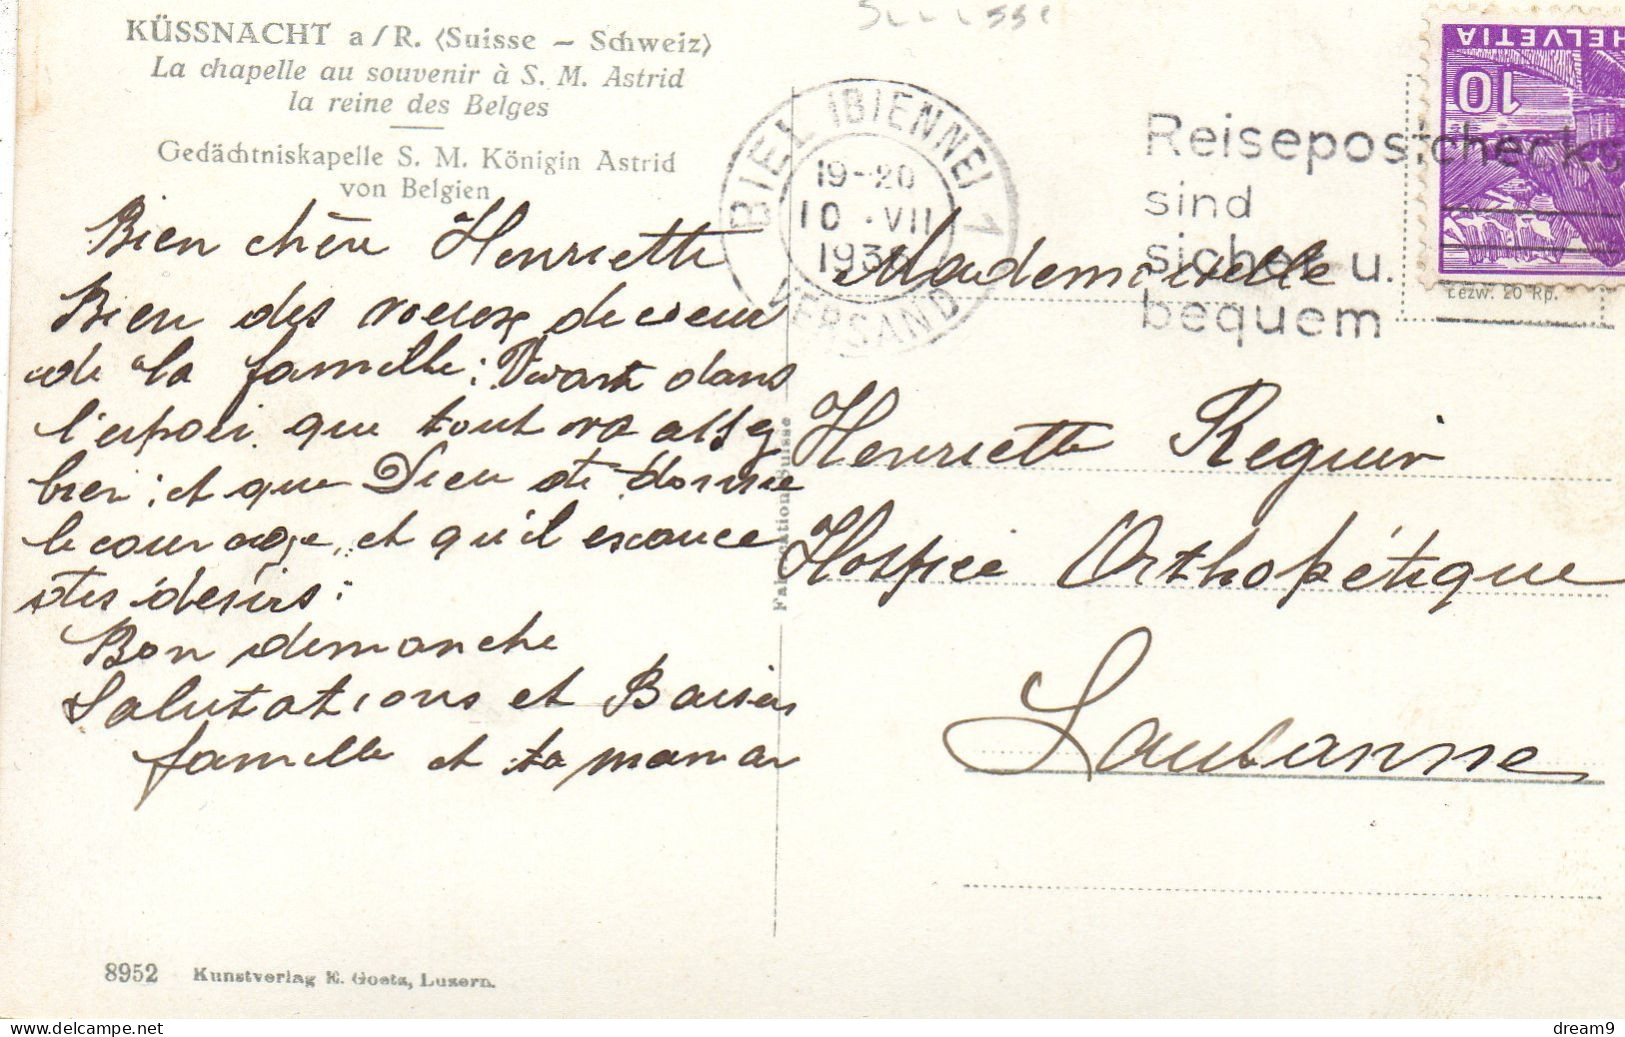 Suisse
KÜSSNACHT a/R. (Suisse – Schweiz)
La chapelle au souvenir à S. M. Astrid
la reine des Belges
Gedächtniskapelle S. M. Königin Astrid
von Belgien
Bien chère Henriette
Bien des voeux de coeur
de la famille; Vivant dans
l'espoir que tout va assez
bien; et que Dieu te donne
le courage, et qu'il exauce
tes désirs:
Bon dimanche
Salutations et Baisers
famille et ta maman
8952 Kunstverlag E. Goetz, Luzern.
Fabrication Suisse
BIEL (BIENNE) 1
19-20
10.VII
193
VERSAND
Reisepostchecks
sind
sicher u.
bequem
HELVETIA
10
Lezw. 20 Rp.
Mademoiselle
Henriette Reguin
Hospice Orthopétique
Lausanne
© dream9